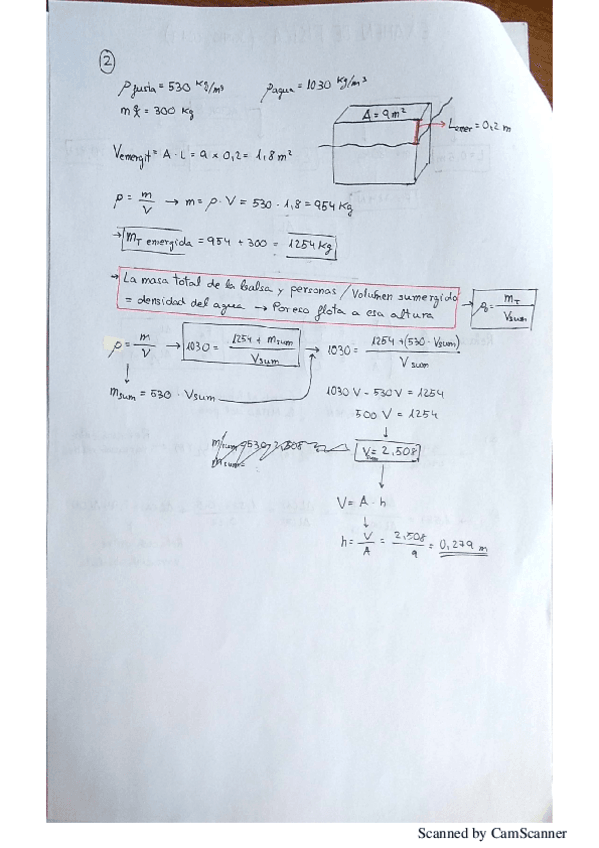 2
ρ fusta = 530 Kg/m³ ρ agua = 1030 Kg/m³
= 300 Kg
A = 9 m²
L emer = 0,2 m
V emergit = A · L = 9 x 0,2 = 1,8 m²
ρ = m/V → m = ρ · V = 530 · 1,8 = 954 Kg
→ m_T emergida = 954 + 300 = 1254 Kg
→ La masa total de la balsa y personas / Volumen sumergido
= densidad del agua → Por eso flota a esa altura
→ = m_T / V sum
ρ = m/V → 1030 = (1254 + m sum) / V sum → 1030 = (1254 + (530 · V sum)) / V sum
↓
m sum = 530 · V sum
1030 V - 530 V = 1254
500 V = 1254
↓
V = 2,508
↓
V = A · h
↓
h = V/A = 2,508/9 = 0,279 m
Scanned by CamScanner